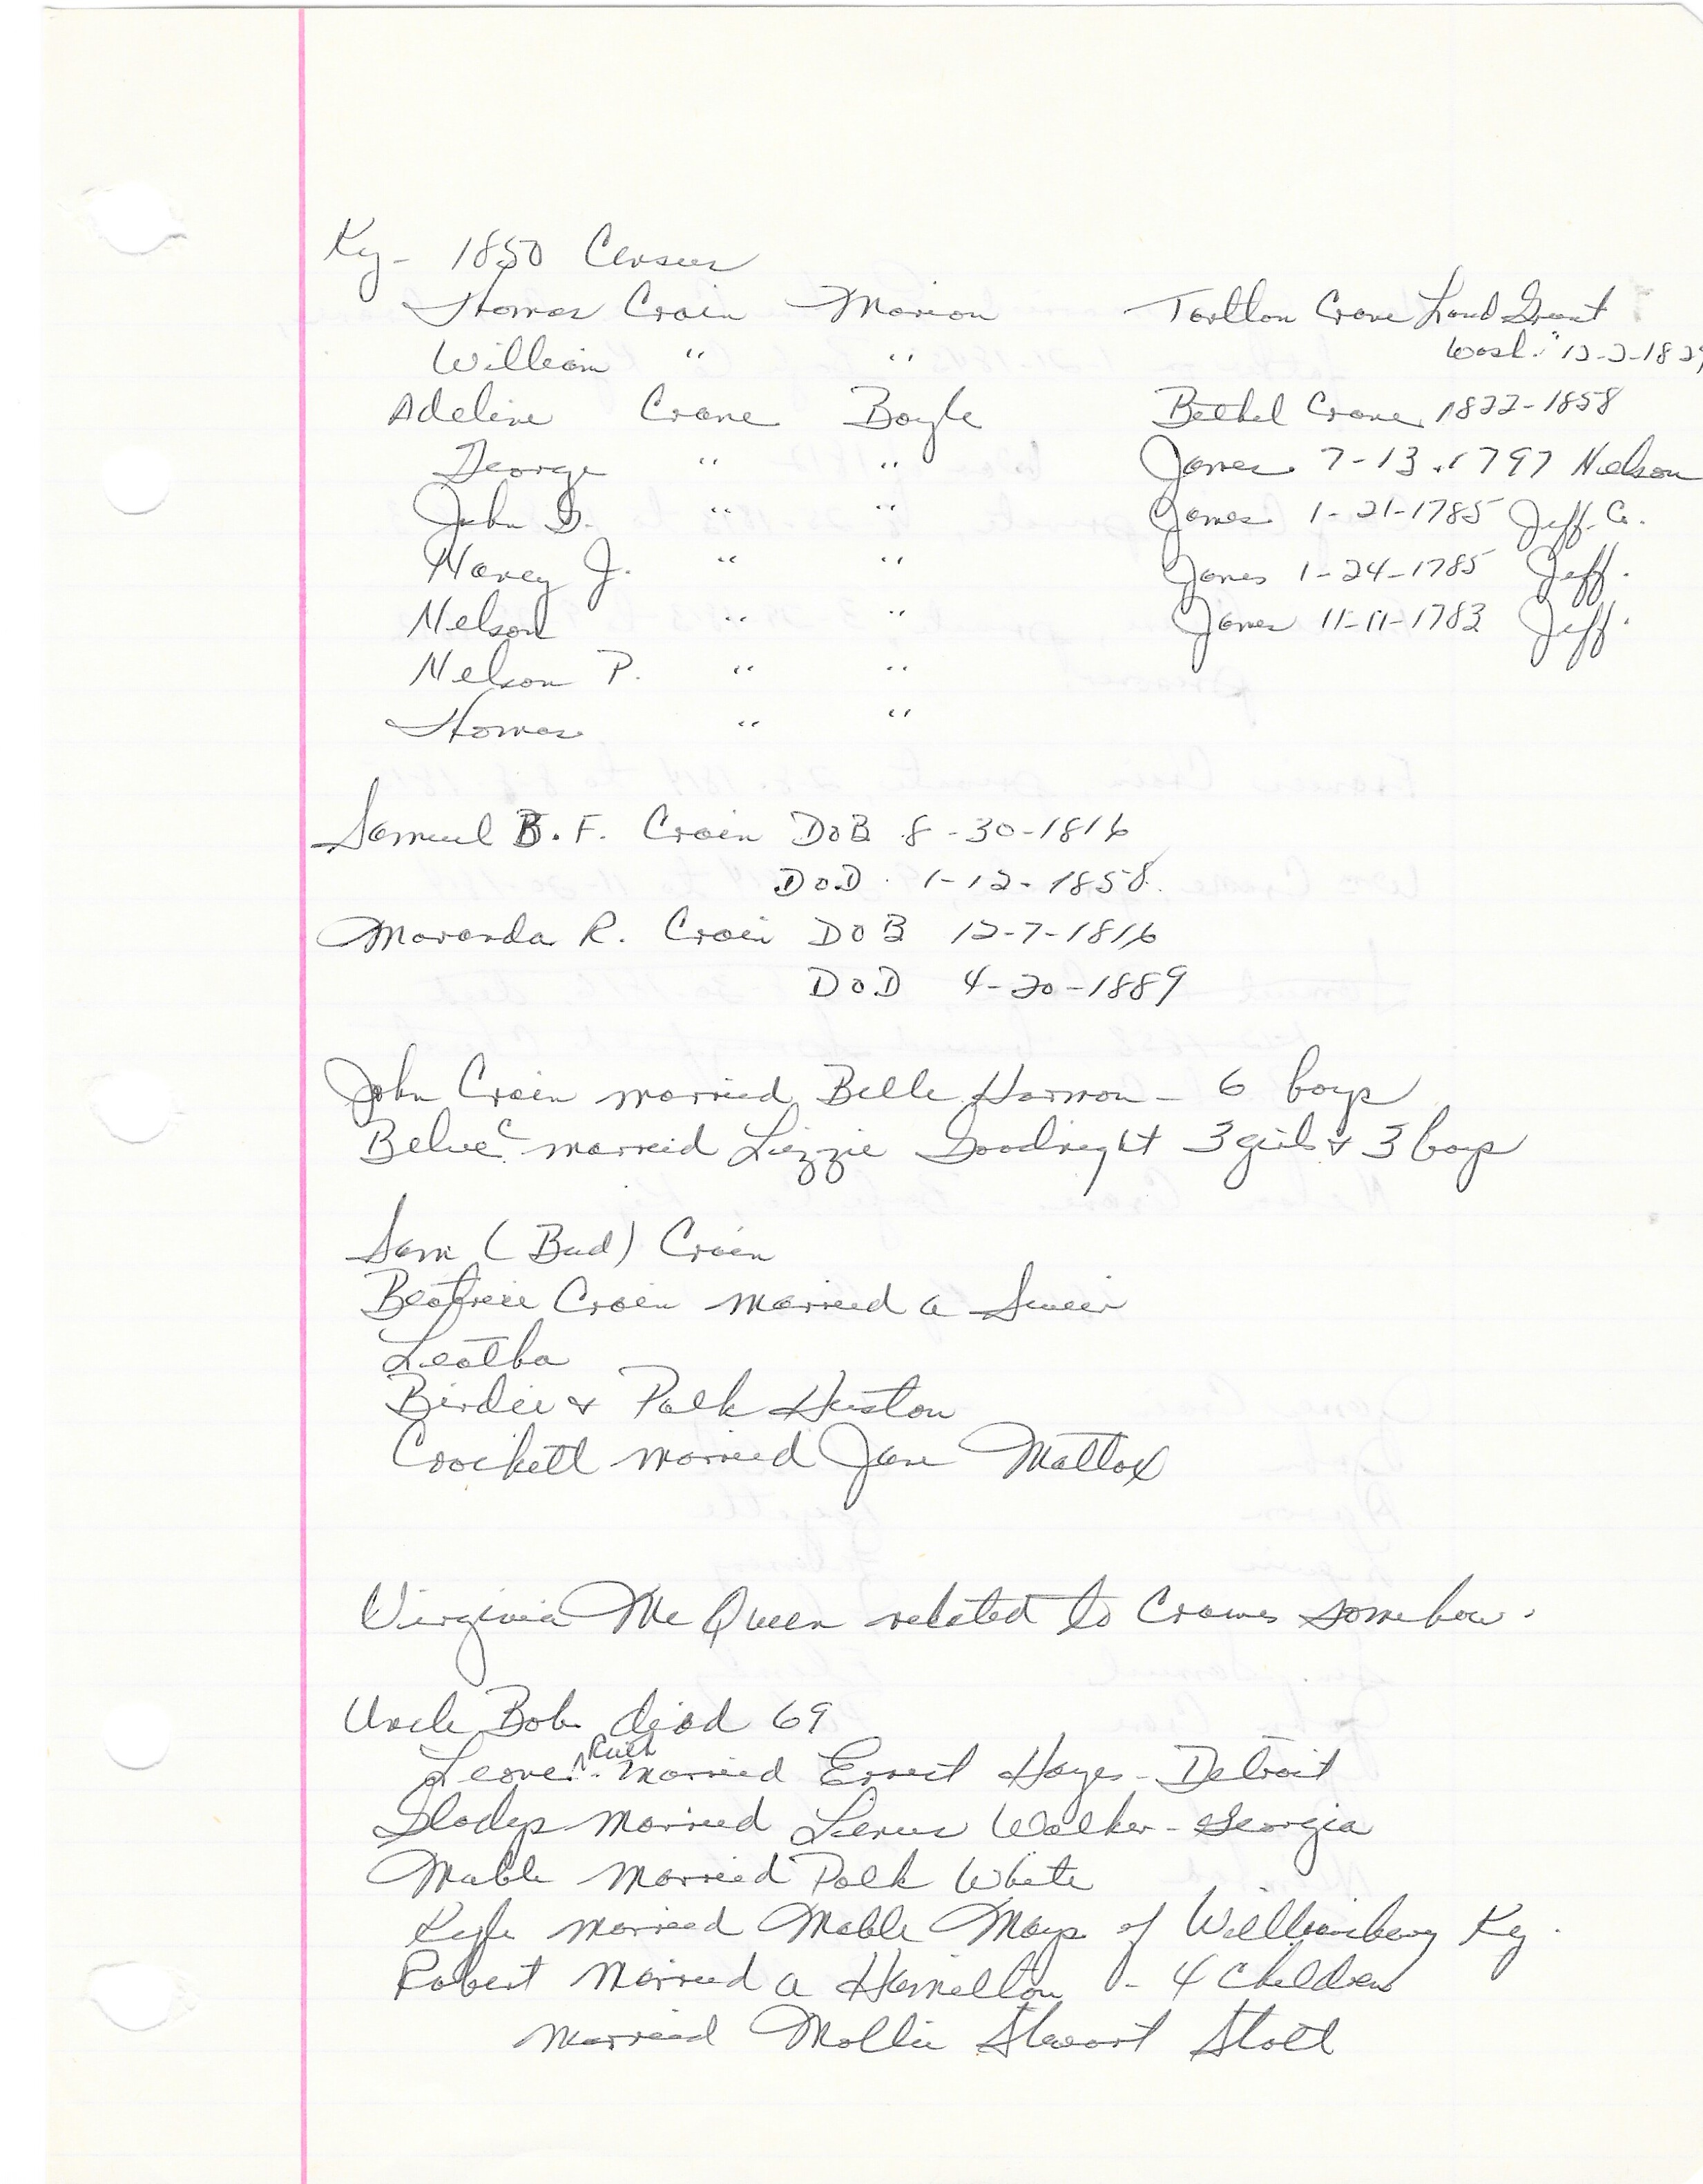 Ky - 1850 Census
Thomas Crain Marion Tarlton Crane Land Grant
William " " Wash. 12-2-182
Adeline Crane Boyle Bethel Crane 1822-1858
George " " James 7-13-1797 Nelson
John G. " " James 1-21-1785 Jeff. Co.
Nancy J. " " James 1-24-1785 Jeff.
Nelson " " James 11-11-1783 Jeff.
Nelson P. " "
Thomas " "
Samuel B. F. Crain DOB 8-30-1816
DOD 1-12-1858.
Maranda R. Crain DOB 12-7-1816
DOD 4-20-1889
John Crain married Belle Harmon - 6 boys
Belve C married Lizzie Goodnight 3 girls & 3 boys
Sam (Bud) Crain
Beatrice Crain married a
Leatha
Birdie & Polk Huston
Crockett married Jane Mattox
Virginia McQueen related to Cranes somehow.
Uncle Bob died 69
Ruth married Ernest Hayes - Detroit
Gladys married Walker - Georgia
Mable married Polk White
Kyle married Mable Mays of Williamsburg Ky.
Robert married a Hamilton - 4 Children
married Mollie Stewart Stott